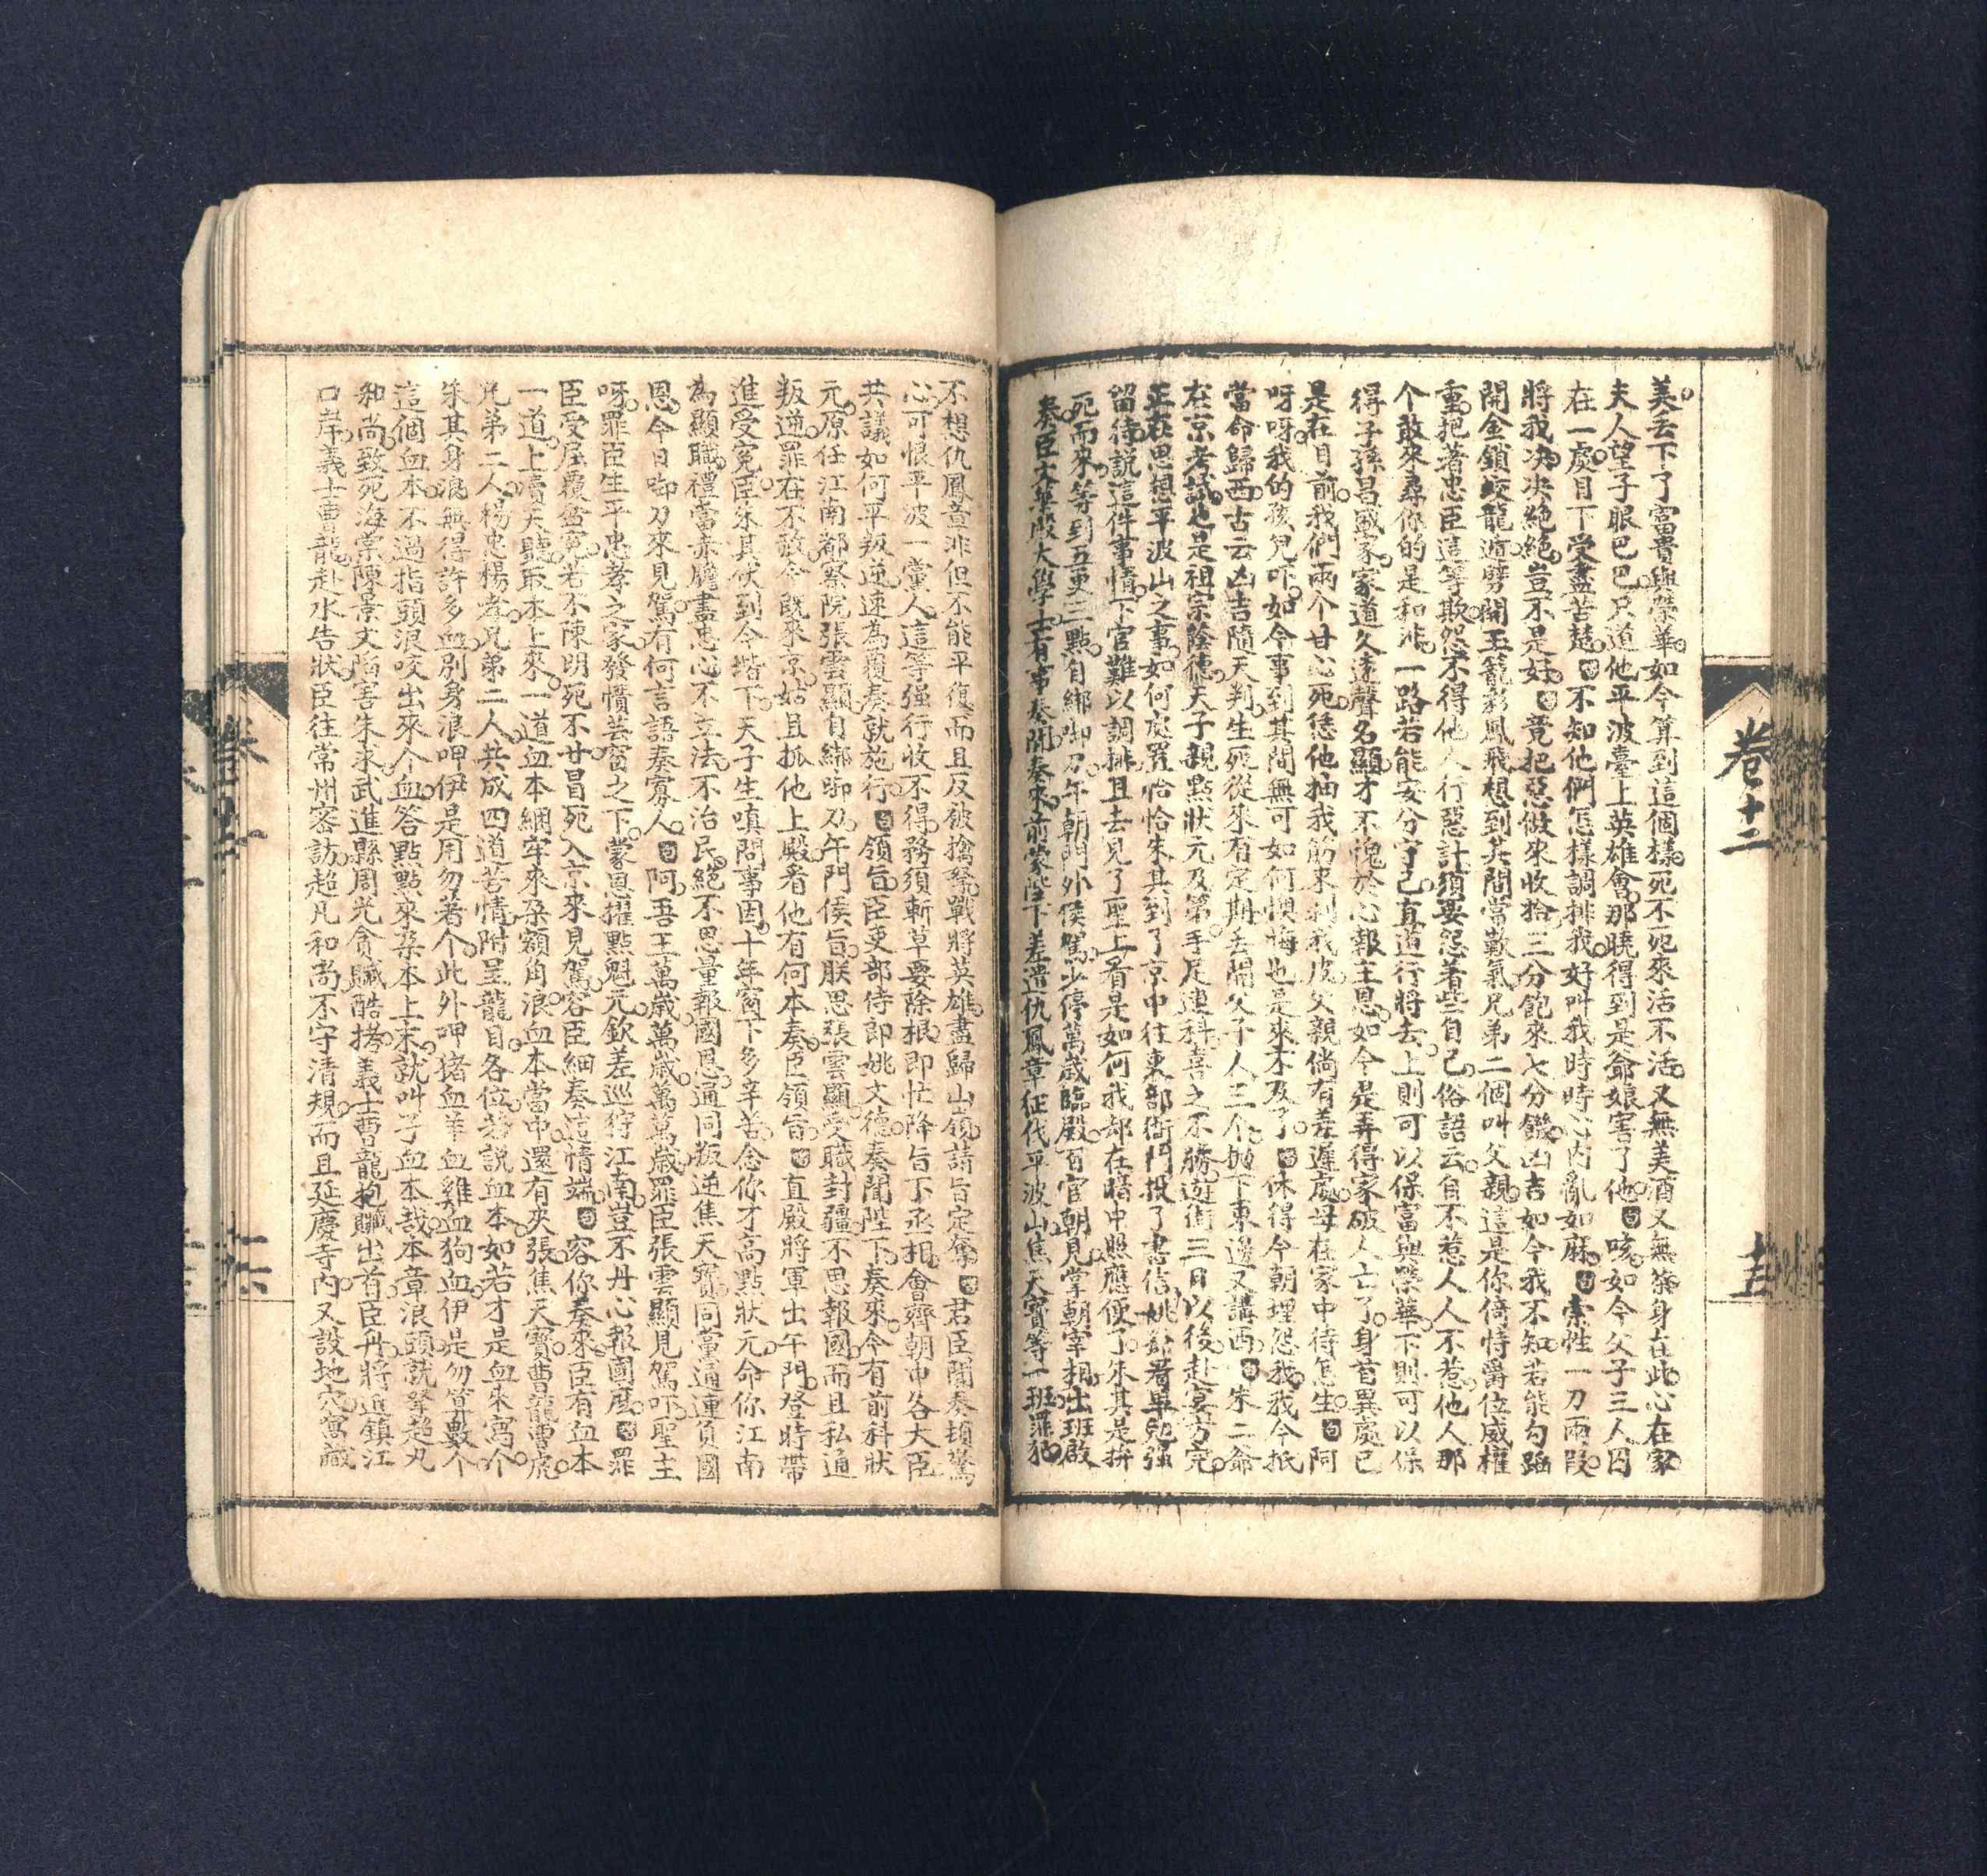 卷十二
十五
美丟下了富貴與榮華如今算到這個樣死不死來活不活又無美酒又無策身在此心在家
夫人望子眼巴巴只道他平波臺上英雄會那曉得到是爺娘害了他白咳如今父子三人因
在一處目下受盡苦楚白不知他們怎樣調排我好叫我時時心內亂如麻白索性一刀兩段
將我决决絕絕豈不是好白竟把惡做來收拾三分飽來七分饑凶吉如今我不知若能勾踹
開金鎖蛟龍遁劈開玉籠彩鳳飛想到其間當歎氣兄弟二個叫父親這是你倚恃爵位威權
重把著忠臣這等欺怨不得他人行惡計須要怨著些自己俗語云自不惹人人不惹他人那
個敢來尋你的是和非一路若能安分守己直道行將去上則可以保富與榮華下則可以保
得子孫昌盛家家道久遠聲名顯才不愧於心報主恩如今是弄得家破人亡了身首異處已
是在目前我們兩个甘心死恁他抽我筋來剝我皮父親倘有差遲處母在家中待怎生白阿
呀呀我的孩兒吓如今事到其間無可如何懊悔也是來不及了白休得今朝埋怨我我今抵
當命歸西古云凶吉隨天判生死從來有定期丟開父子人三个拋下東邊又講西白朱二爺
在京考試也是祖宗蔭德天子親點狀元及第手足連科喜之不勝遊街三日以後赴宴方完
正在思想平波山之事如何處置恰恰朱其到了京中往東部衙門投了書信姚爺看畢勉強
留待說這件事情下官難以調排且去見了聖上看是如何我却在暗中照應便了朱其是拚
死而來等到五更三點自綁啣刀午朝門外候駕少停萬歲臨殿百官朝見掌朝宰相出班啟
奏臣文華殿大學士有事奏聞奏來前蒙陛下差遣仇鳳章征伐平波山焦天寶等一班罪犯
不想仇鳳章非但不能平復而且反被擒拏戰將英雄盡歸山嶺請旨定奪白君臣聞奏頓驚
心可恨平波一黨人這等强行收不得務須斬草要除根即忙降旨下丞相會齊朝中各大臣
共議如何平叛逆速為覆奏就施行白領旨臣吏部侍郎姚文德奏聞陛下奏來今有前科狀
元原任江南都察院張雲顯自綁啣刀午門侯旨朕思張雲顯受職封疆不思報國而且私通
叛逆罪在不赦今既來京姑且抓他上殿看他有何本奏臣領旨白直殿將軍出午門登時帶
進受冤臣朱其伏到今堦下天子生嗔問事因十年窗下多辛苦念你才高點狀元命你江南
為顯職禮當赤膽盡忠心不立法不治民絕不思量報國恩通同叛逆焦天寶同黨通連負國
恩今日啣刀來見駕有何言語奏寡人白阿吾王萬歲萬歲萬萬歲罪臣張雲顯見駕吓聖主
呀罪臣生平忠孝之家發憤芸窗之下蒙恩擢點魁元欽差巡狩江南豈不丹心報國麼白罪
臣受屈覆盆寃若不陳明死不甘冒死入京來見駕容臣細奏這情端白容你奏來臣有血本
一道上瀆天聽取本上來一道血本綱牢來朶額角浪血本當中還有夾張焦天寶曹龍曹虎
兄弟二人楊忠楊孝兄弟二人共成四道苦情附呈龍目各位若說血本如若才是血來寫个
朱其身浪無得許多血別身浪呷伊是用勿著个此外呷猪血羊血雞血狗血伊是勿算數个
這個血本不過指頭浪咬出來个血答點點來朶本上末就叫子血本哉本章浪頭就拏超丸
和尚致死海棠陳景文陷害朱求武進縣周光貪贓酷拷義士曹龍抱贓出首臣丹將進鎮江
口岸義士曹龍赴水告狀臣往常州密訪超凡和尚不守清規而且延慶寺內又設地穴窩藏
十六